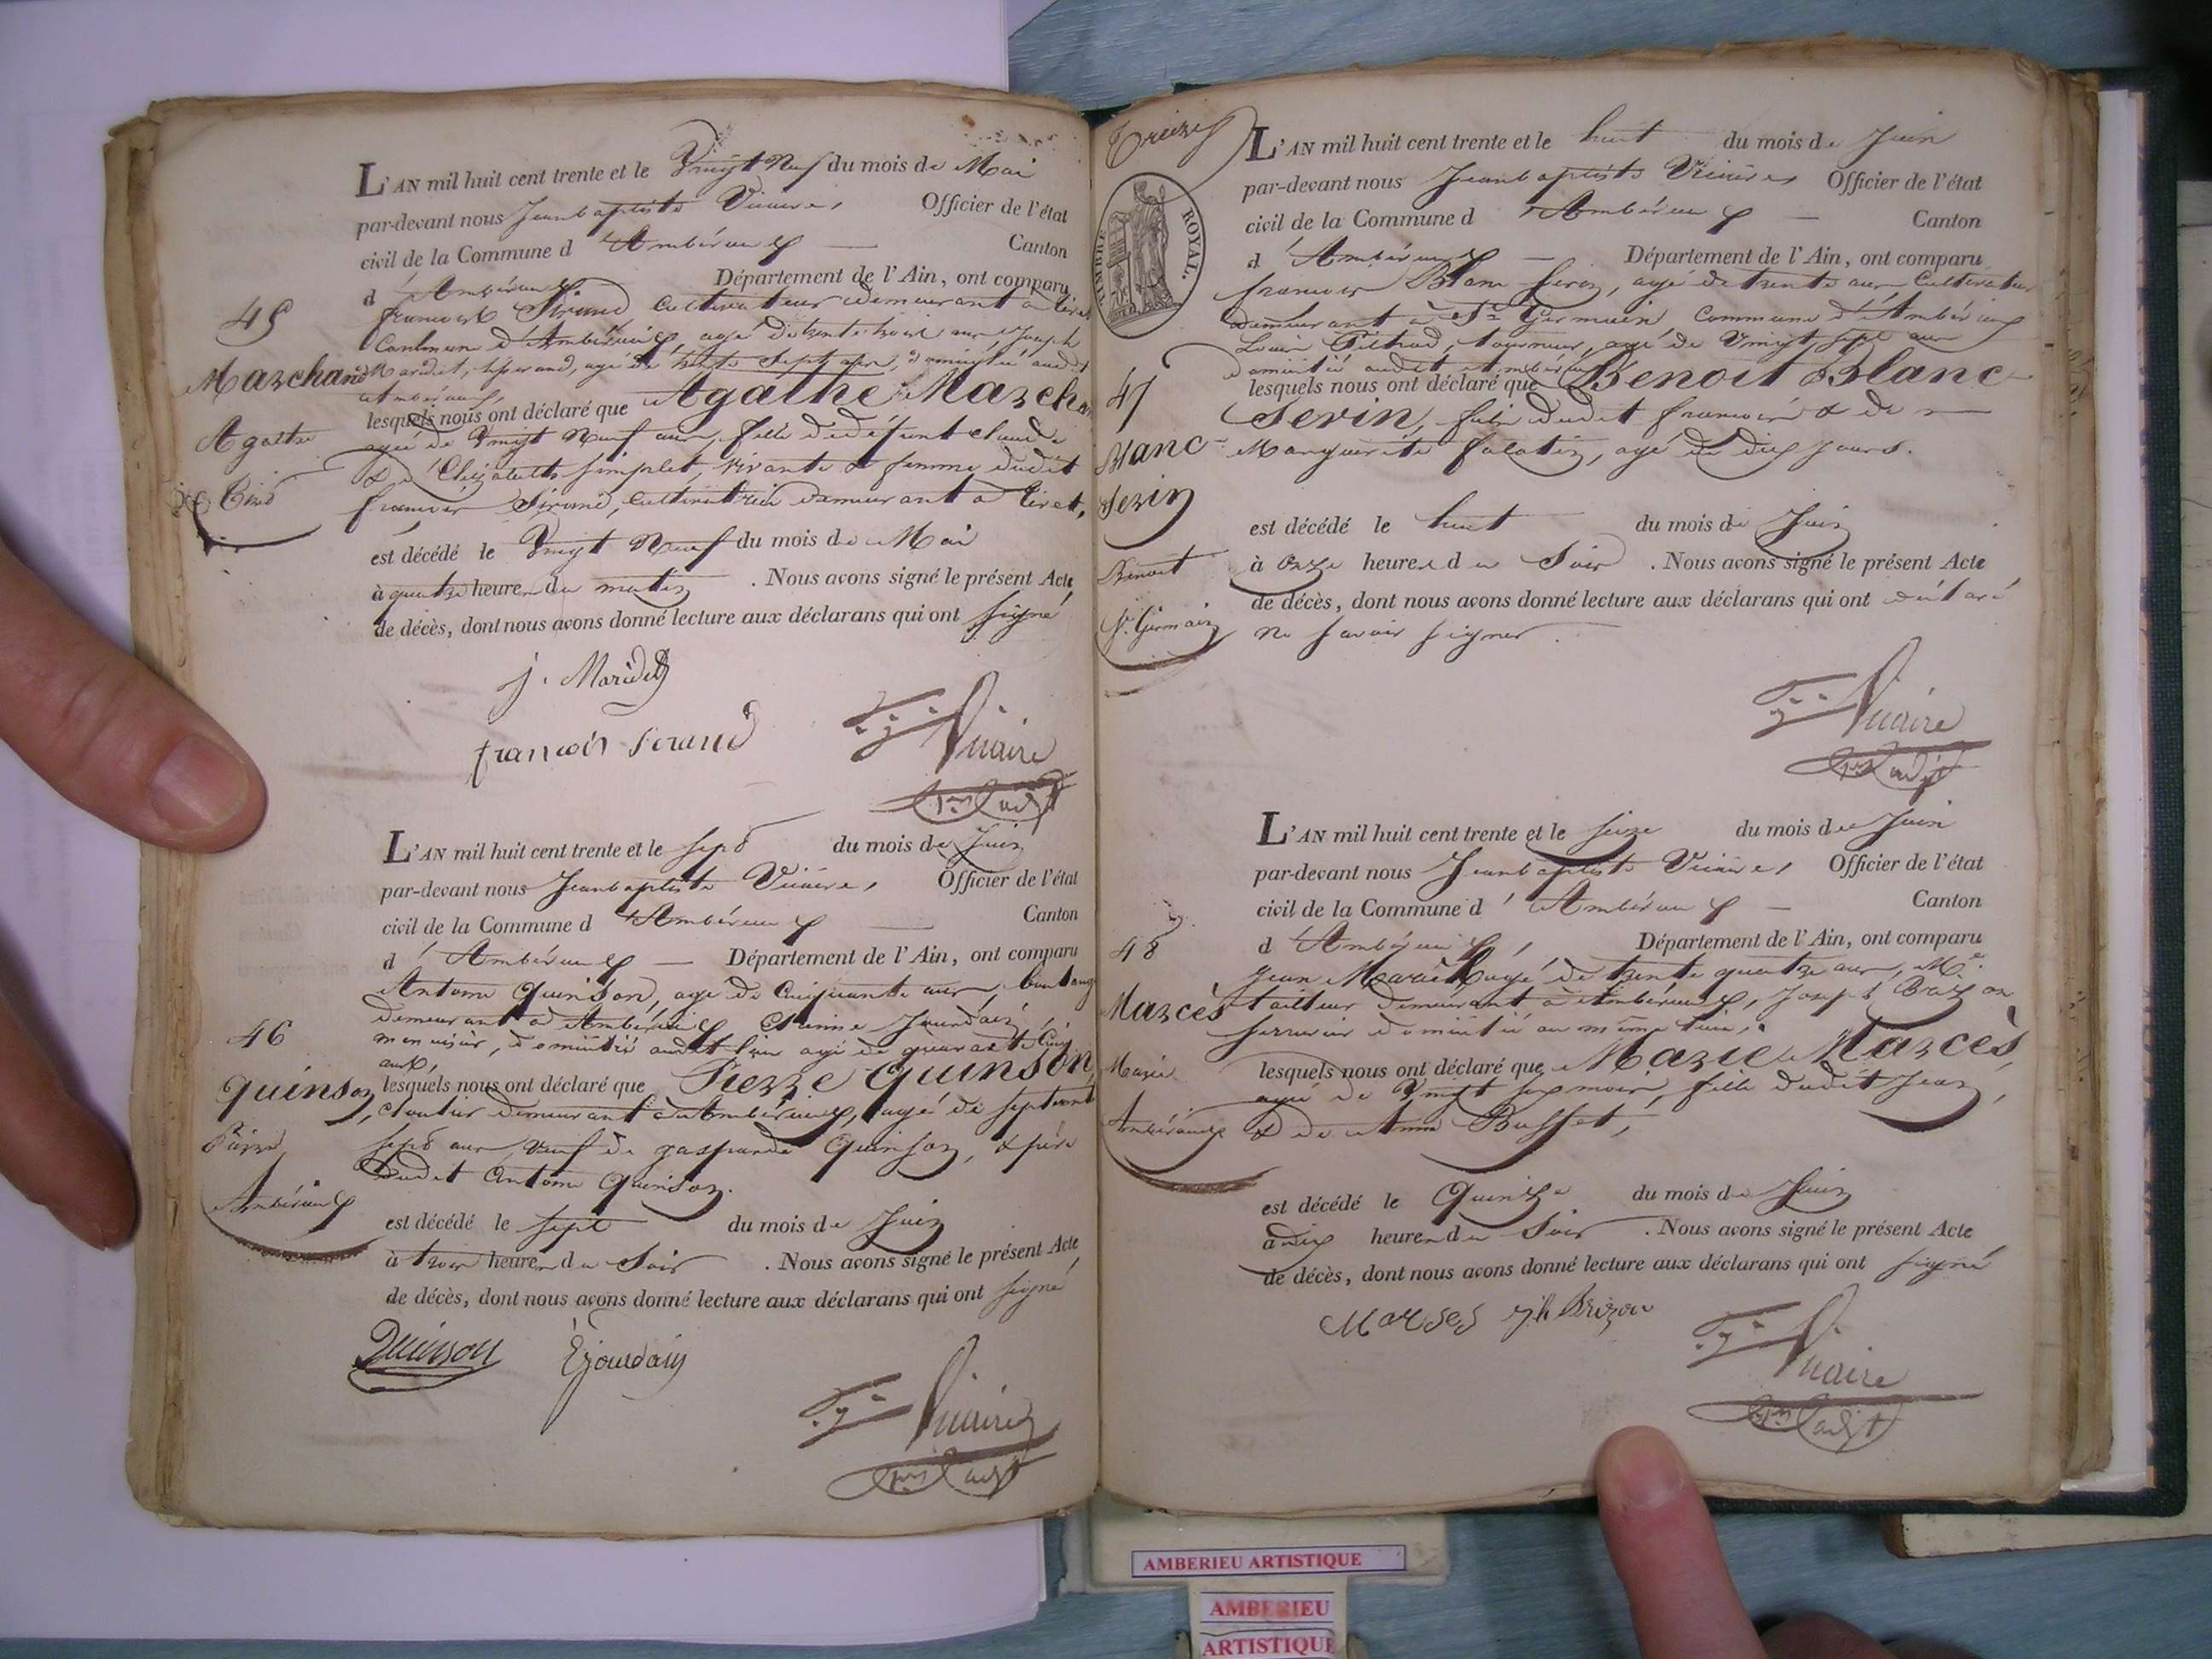 L'AN mil huit cent trente et le Vingt Neuf du mois de Mai
par-devant nous Jeanbaptiste Vicaire, Officier de l'état
civil de la Commune d'Ambérieux — Canton
d'Ambérieux Département de l'Ain, ont comparu
françois Sirand, Cultivateur demeurant à Tiret
Commune d'Ambérieux, agé de trente trois ans, Joseph
Maridet, agé de trente sept ans, domicilié audit
Ambérieux,
lesquels nous ont déclaré que Agathe Marchand
agée de Vingt Neuf ans, fille de défunt claude
& d'Elizabeth simplet, vivante & femme dudit
françois Sirand, cultivatrice demeurant à Tiret,
est décédé le Vingt Neuf du mois de Mai
à quatre heures du matin . Nous avons signé le présent Acte
de décès, dont nous avons donné lecture aux déclarans qui ont signé
45
Marchand
Agathe
Tiret
j. Maridet
françois Sirand
Vicaire
L'AN mil huit cent trente et le sept du mois de Juin
par-devant nous Jeanbaptiste Vicaire, Officier de l'état
civil de la Commune d'Ambérieux — Canton
d'Ambérieux — Département de l'Ain, ont comparu
Antoine Quinson, agé de Cinquante ans, boulanger
demeurant à Ambérieux, Etienne Jourdain,
menuisier, domicilié audit lieu agé de quarante Cinq
ans,
lesquels nous ont déclaré que Pierre Quinson,
cloutier demeurant à Ambérieux, agé de septante
sept ans, veuf de gasparde Quinson, & père
dudit Antoine Quinson.
est décédé le sept du mois de Juin
à trois heures du Soir . Nous avons signé le présent Acte
de décès, dont nous avons donné lecture aux déclarans qui ont signé
46
Quinson
Pierre
Ambérieux
Quinson Ejourdain
Vicaire
Treize
TIMBRE ROYAL.
L'AN mil huit cent trente et le huit du mois de Juin
par-devant nous Jeanbaptiste Vicaire, Officier de l'état
civil de la Commune d'Ambérieux — Canton
d'Ambérieux — Département de l'Ain, ont comparu
françois Blanc Serin, agé de trente ans Cultivateur
demeurant à St Germain Commune d'Ambérieux
Louis, tourneur, agé de Vingt sept ans
domicilié audit Ambérieux
lesquels nous ont déclaré que Benoit Blanc
Serin, fils dudit françois & de
Marguerite falatin, agé de dix jours.
est décédé le huit du mois de Juin
à onze heures du Soir . Nous avons signé le présent Acte
de décès, dont nous avons donné lecture aux déclarans qui ont déclaré
ne savoir signer.
47
Blanc
Serin
Benoit
St Germain
Vicaire
L'AN mil huit cent trente et le seize du mois de Juin
par-devant nous Jeanbaptiste Vicaire, Officier de l'état
civil de la Commune d'Ambérieux — Canton
d'Ambérieux, Département de l'Ain, ont comparu
Jean agé de trente quatre ans, Me
tailleur demeurant à Ambérieux, Joseph
serrurier domicilié au même lieu,
lesquels nous ont déclaré que Marie Marcès,
agée de Vingt six mois, fille dudit Jean,
& de Anne Buffet,
est décédé le Quinze du mois de Juin
à dix heures du Soir . Nous avons signé le présent Acte
de décès, dont nous avons donné lecture aux déclarans qui ont signé
48
Marcès
Marie
Ambérieux
Marses jh Brizon
Vicaire
AMBERIEU ARTISTIQUE
AMBERIEU
ARTISTIQUE